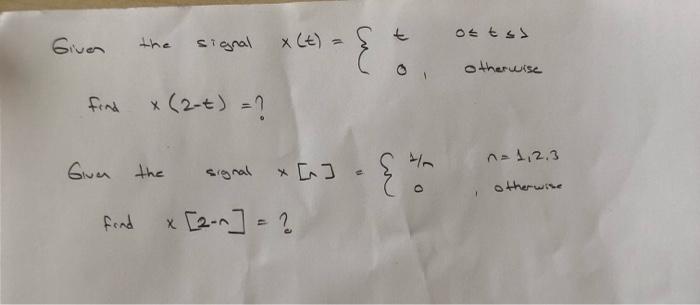 Given the signal x(t) = { t 0≤ t ≤1
0, otherwise
find x(2-t) = ?
Given the signal x[n] = { 1/n n=1,2,3
0, otherwise
find x[2-n] = ?